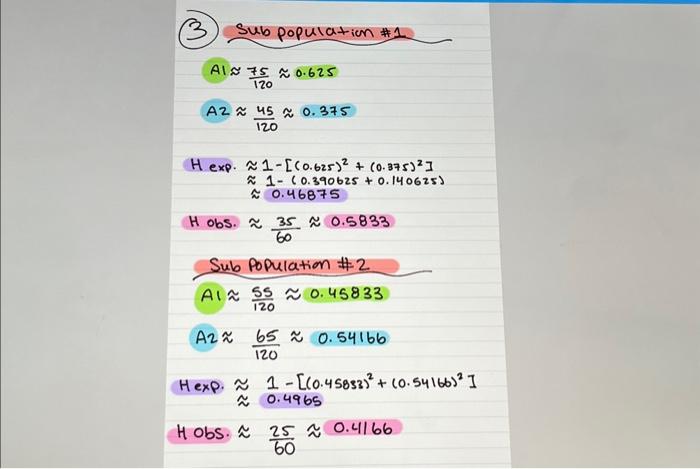 ③ Sub population #1
A1 ≈ 75/120 ≈ 0.625
A2 ≈ 45/120 ≈ 0.375
H exp. ≈ 1-[(0.625)² + (0.375)²]
≈ 1- (0.390625 + 0.140625)
≈ 0.46875
H obs. ≈ 35/60 ≈ 0.5833
Sub Population #2
A1 ≈ 55/120 ≈ 0.45833
A2 ≈ 65/120 ≈ 0.54166
H exp. ≈ 1 - [(0.45833)² + (0.54166)²]
≈ 0.4965
H obs. ≈ 25/60 ≈ 0.4166